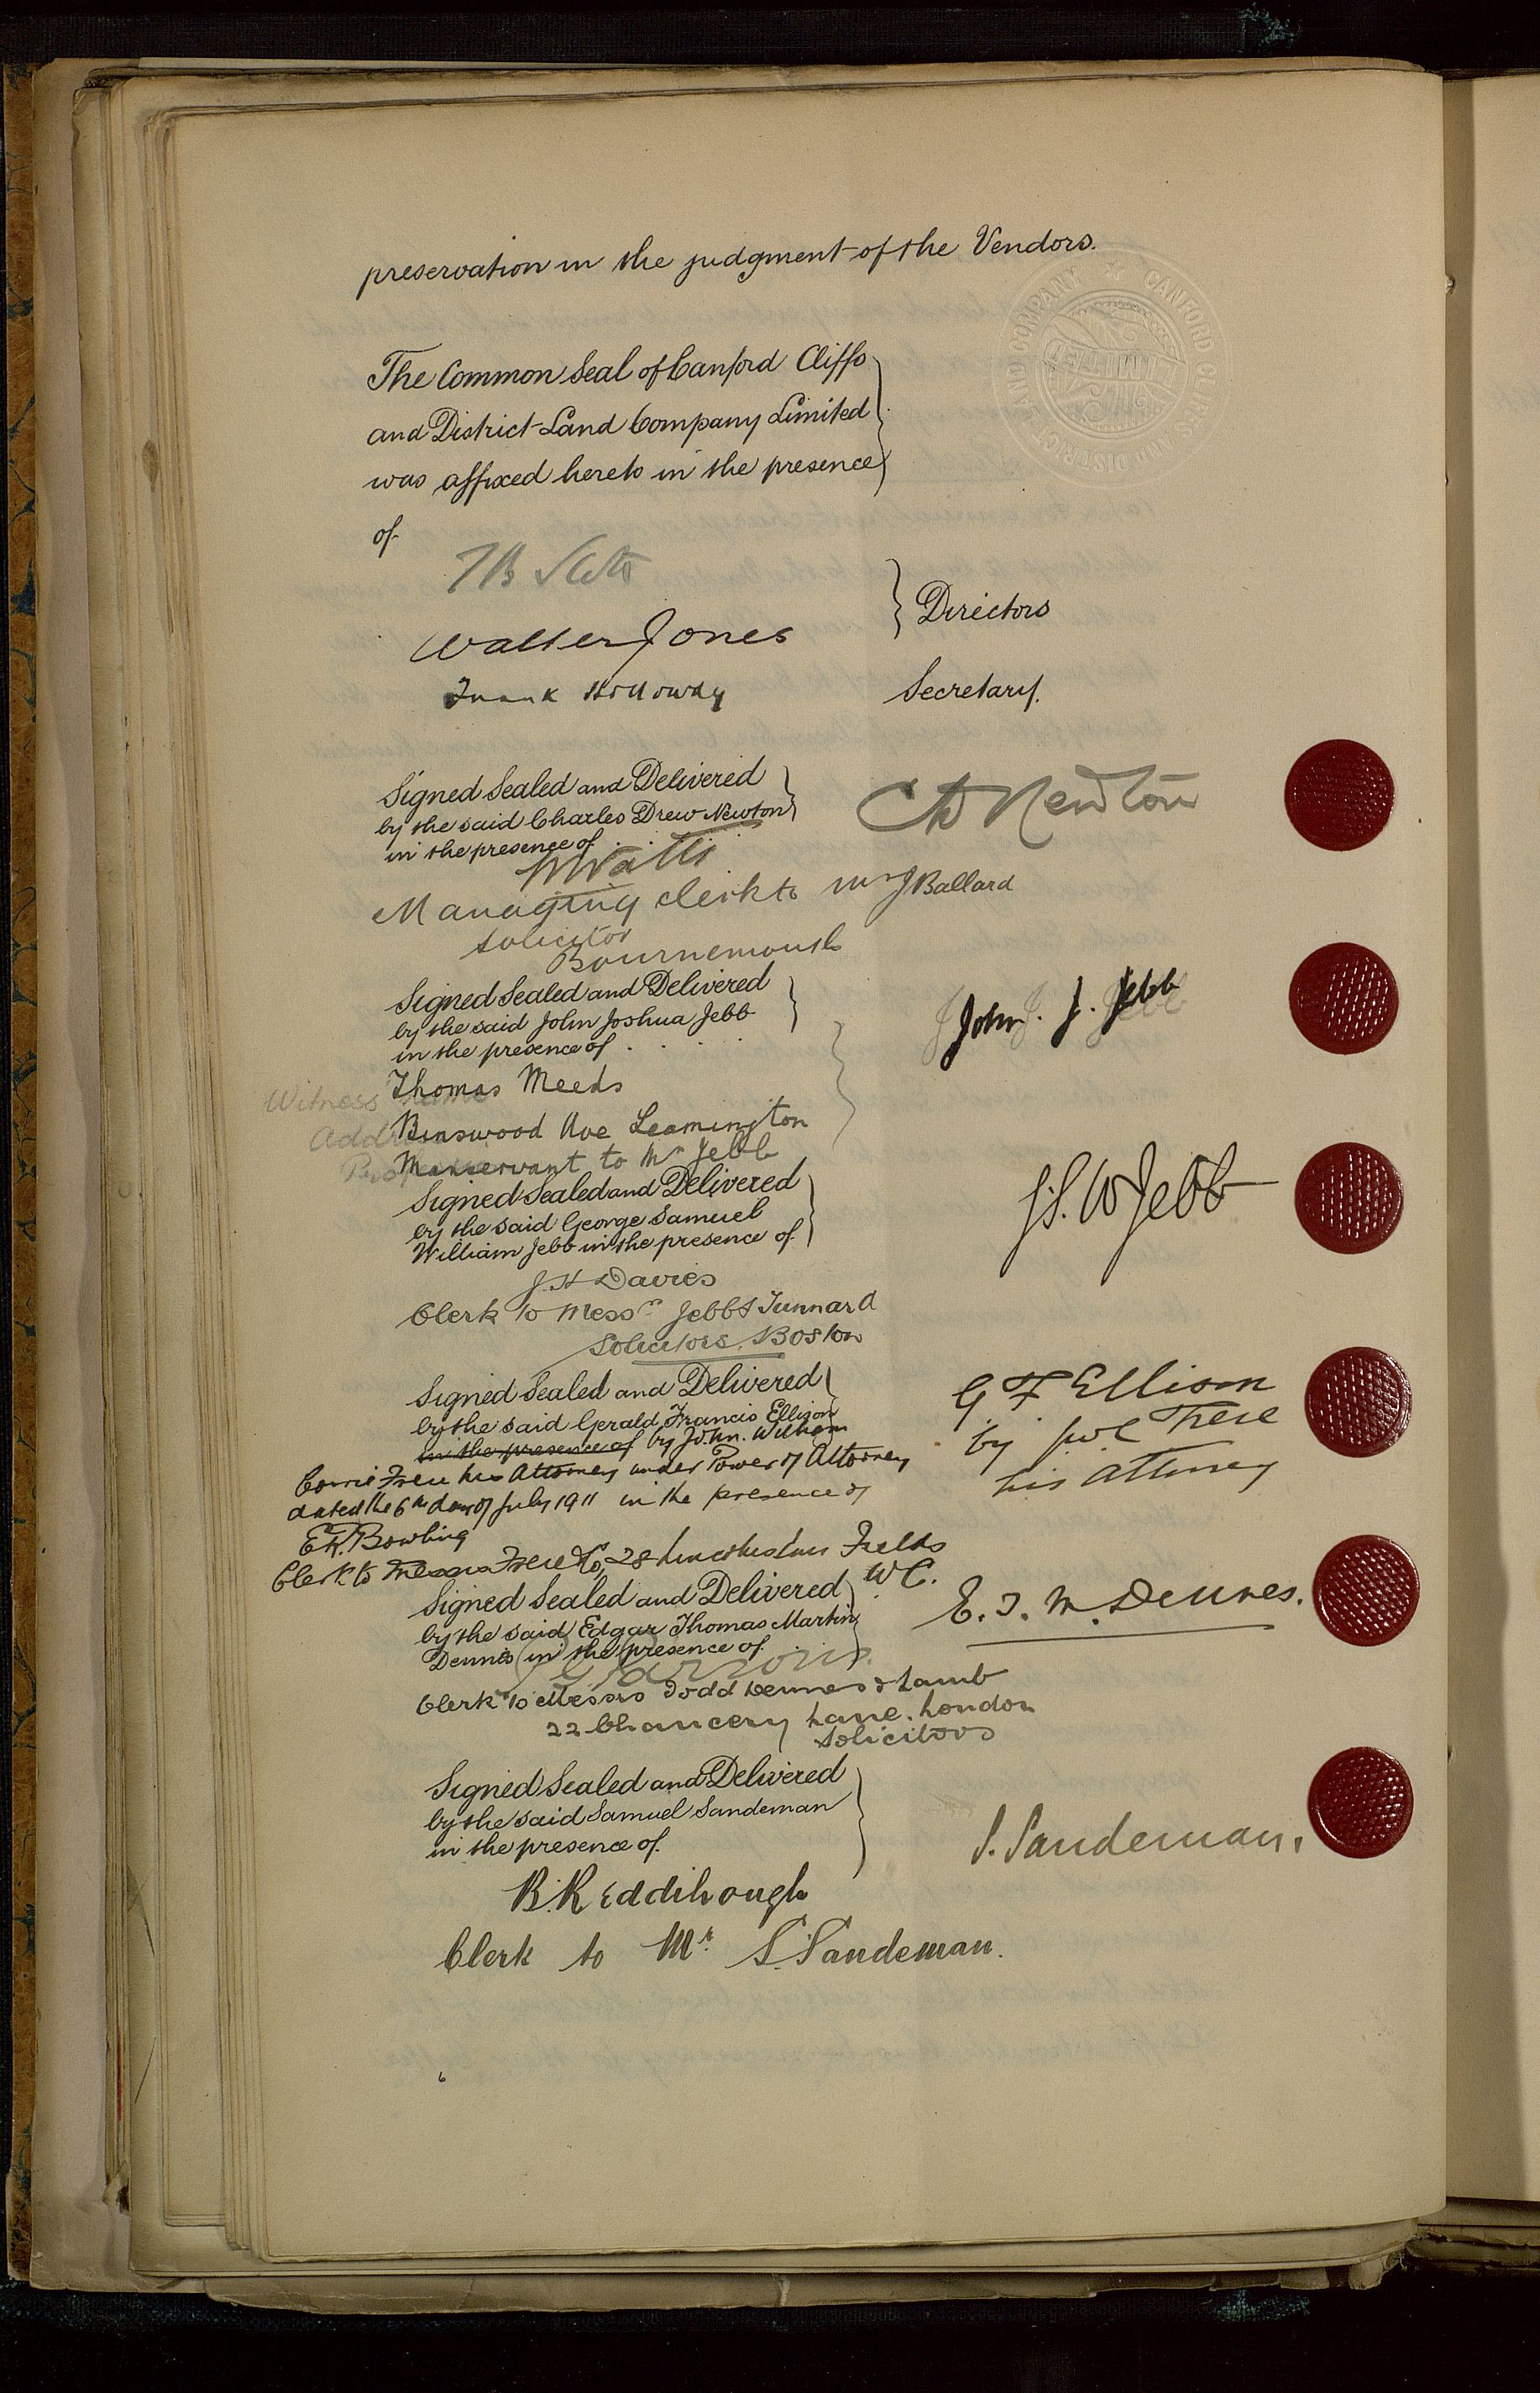 preservation in the judgment of the Vendors.
CANFORD CLIFFS AND DISTRICT LAND COMPANY
LIMITED
The Common Seal of Canford Cliffs
and District Land Company Limited
was affixed hereto in the presence
of
Walter Jones
Directors
Frank Holloway
Secretary.
Signed Sealed and Delivered
by the said Charles Drew Newton
in the presence of
CD Newton
Watts
Managing clerk to Mr J Ballard
Solicitor
Bournemouth
Signed Sealed and Delivered
by the said John Joshua Jebb
in the presence of . . . .
John. J. Jebb
Witness Thomas Meeds
Address Binswood Ave Leamington
Manservant to Mr Jebb
Signed Sealed and Delivered
by the said George Samuel
William Jebb in the presence of
G.S.W Jebb
J. H Davies
Clerk to Messrs Jebb & Tunnard
Solicitors, Boston
Signed Sealed and Delivered
by the said Gerald Francis Ellison
in the presence of by John William
Corrie Frere his Attorney under Power of Attorney
dated the 6th day of July 1911 in the presence of
G F Ellison
by JWC Frere
his attorney
E.R. Bowling
Clerk to Messrs Frere & Co, 28 Lincolns Inn Fields
W C.
Signed Sealed and Delivered
by the said Edgar Thomas Martin
Dennes in the presence of
E. T. M. Dennes.
Parsons
Clerk to Messrs Todd Dennes & Lamb
22 Chancery Lane. London
Solicitors
Signed Sealed and Delivered
by the said Samuel Sandeman
in the presence of.
S. Sandeman.
B. Reddihough
Clerk to Mr. S. Sandeman.